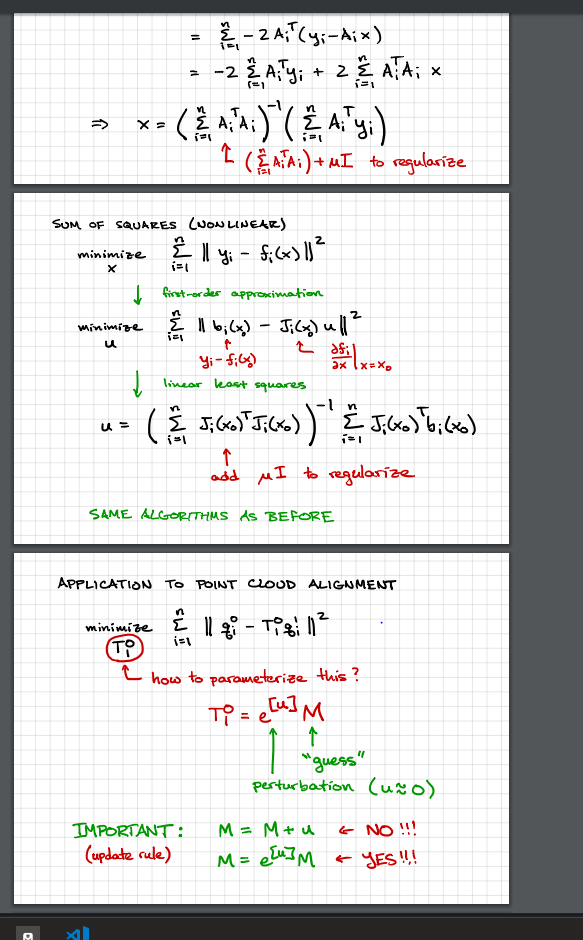 = Σ_{i=1}^{n} -2A_i^T(y_i-A_i x)
= -2 Σ_{i=1}^{n} A_i^T y_i + 2 Σ_{i=1}^{n} A_i^T A_i x
⇒ x = (Σ_{i=1}^{n} A_i^T A_i)^{-1} (Σ_{i=1}^{n} A_i^T y_i)
↑ (Σ_{i=1}^{n} A_i^T A_i) + μI to regularize
SUM OF SQUARES (NONLINEAR)
minimize_x Σ_{i=1}^{n} ‖ y_i - f_i(x) ‖^2
↓ first-order approximation
minimize_u Σ_{i=1}^{n} ‖ b_i(x_0) - J_i(x_0) u ‖^2
↑ y_i - f_i(x_0) ↑ ∂f_i/∂x |_{x=x_0}
↓ linear least squares
u = (Σ_{i=1}^{n} J_i(x_0)^T J_i(x_0))^{-1} Σ_{i=1}^{n} J_i(x_0)^T b_i(x_0)
↑
add μI to regularize
SAME ALGORITHMS AS BEFORE
APPLICATION TO POINT CLOUD ALIGNMENT
minimize_{T_1^0} Σ_{i=1}^{n} ‖ q_i^0 - T_1^0 q_i^1 ‖^2
↑ how to parameterize this?
T_1^0 = e^{[u]} M
"guess"
perturbation (u≈0)
IMPORTANT: M = M + u ← NO!!!
(update rule) M = e^{[u]} M ← YES!!!